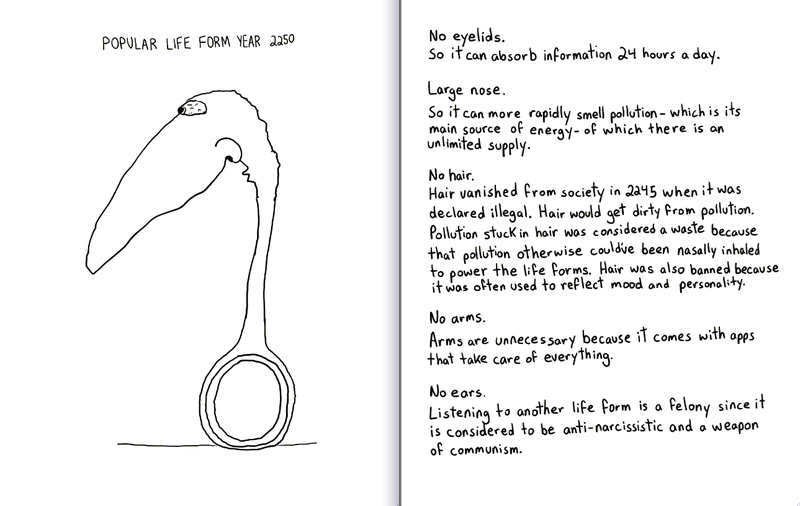 POPULAR LIFE FORM YEAR 2250
No eyelids.
So it can absorb information 24 hours a day.
Large nose.
So it can more rapidly smell pollution- which is its
main source of energy- of which there is an
unlimited supply.
No hair.
Hair vanished from society in 2245 when it was
declared illegal. Hair would get dirty from pollution.
Pollution stuck in hair was considered a waste because
that pollution otherwise could've been nasally inhaled
to power the life forms. Hair was also banned because
it was often used to reflect mood and personality.
No arms.
Arms are unnecessary because it comes with apps
that take care of everything.
No ears.
Listening to another life form is a felony since it
is considered to be anti-narcissistic and a weapon
of communism.